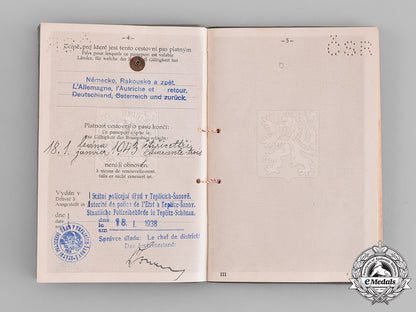 - 4 -
Země, pro které jest tento cestovní pas platným
Pays pour lesquels ce passeport est valable
Länder, für welche der Paß Gültigkeit hat
Německo, Rakousko a zpět.
L'Allemagne, l'Autriche et retour.
Deutschland, Österreich und zurück.
Platnost cestovního pasu končí:
Ce passeport expire le:
Die Gültigkeit des Reisepasses endet:
18. I. ledna 1943
janvier
není-li obnoven.
à moins de renouvellement.
falls er nicht erneuert ist.
Vydán v
Délivré à
Ausgestellt in
Státní policejní úřad v Teplicích-Šanově.
Autorité de police de l'État à Teplitz-Šanov.
Staatliche Polizeibehörde in Teplitz-Schönau.
dne
le
am
18. I. 1938
Správce úřadu: Le chef de district:
Der Amtsvorstand:
- 5 -
ČSR
III
eMedals